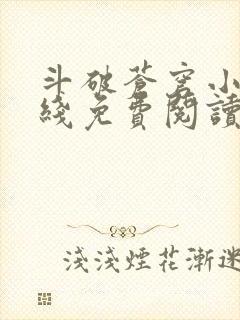 斗破蒼穹小
綫免費閱讀
淺淺煙花漸迷